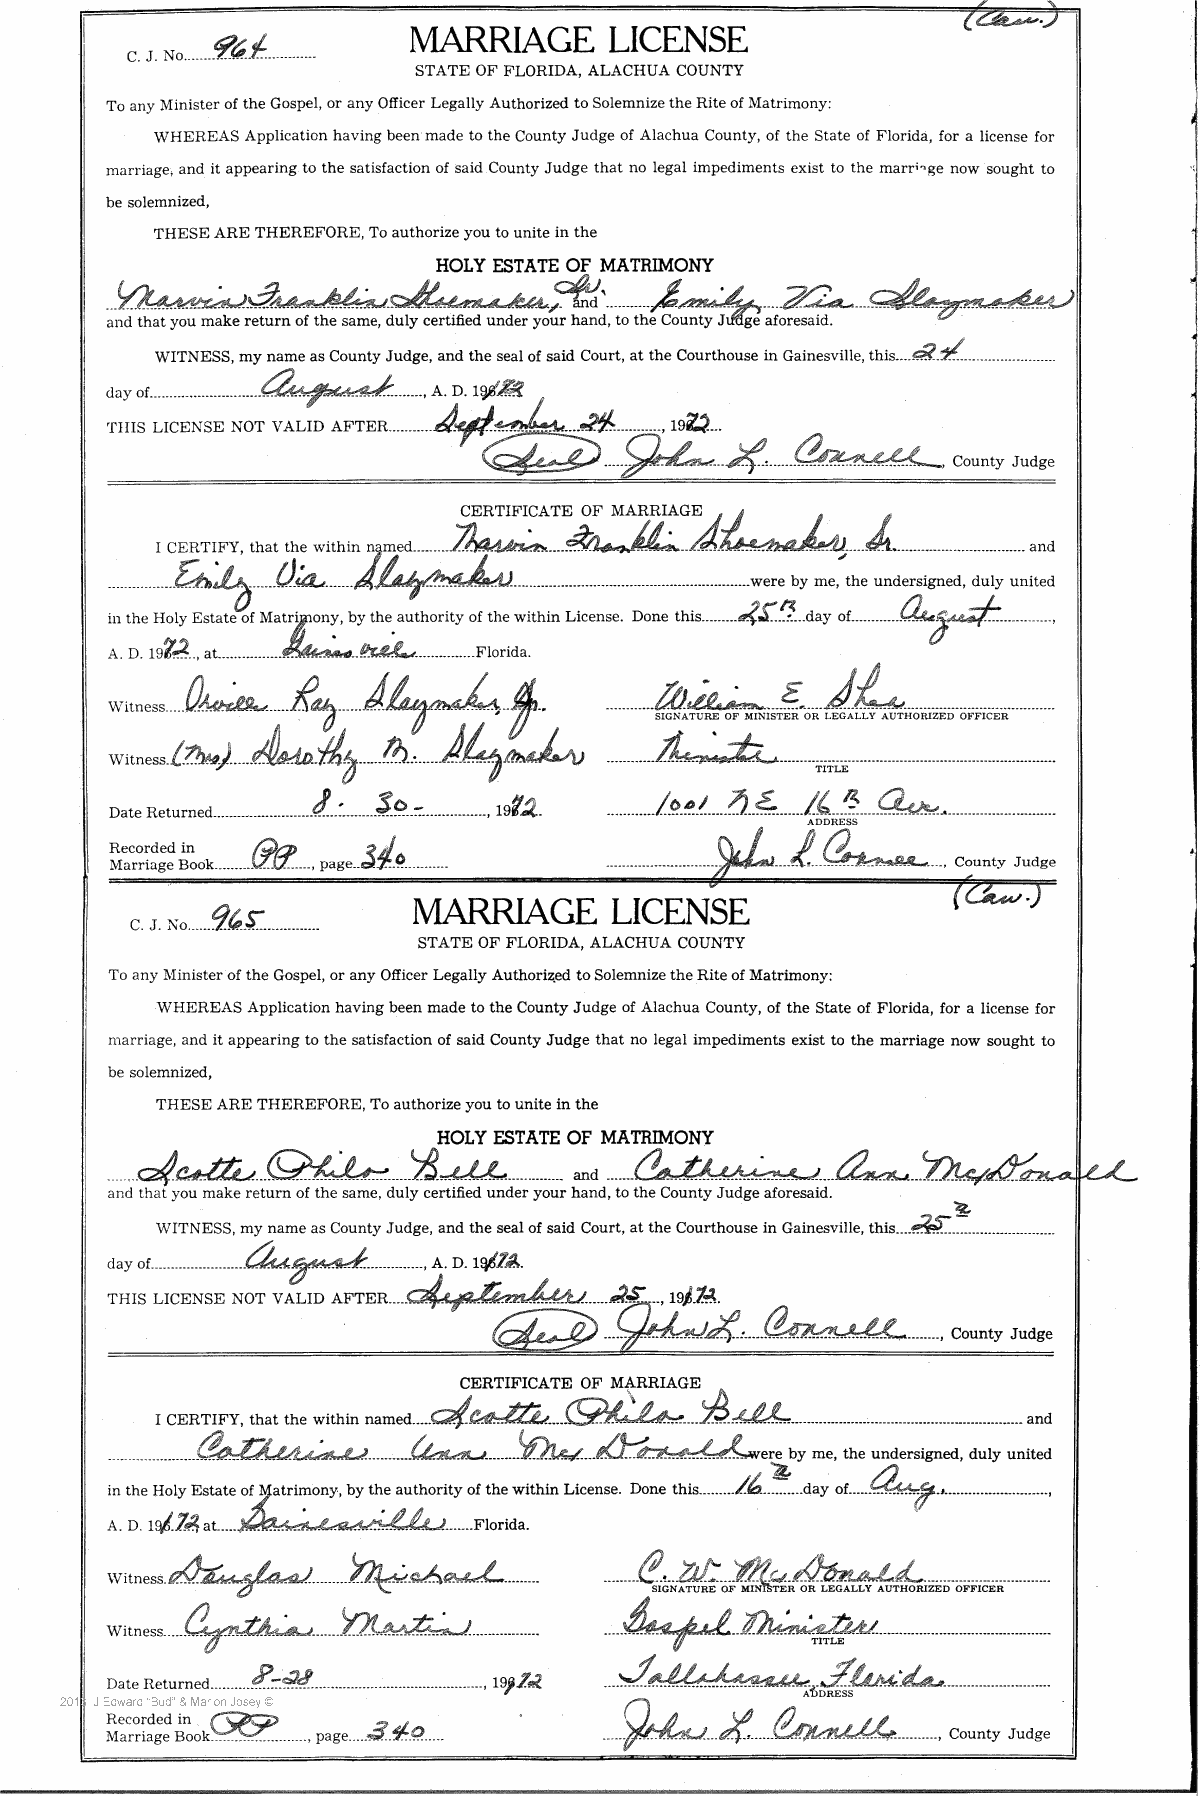 (Caw.)
C. J. No. 964 MARRIAGE LICENSE
STATE OF FLORIDA, ALACHUA COUNTY
To any Minister of the Gospel, or any Officer Legally Authorized to Solemnize the Rite of Matrimony:
WHEREAS Application having been made to the County Judge of Alachua County, of the State of Florida, for a license for
marriage, and it appearing to the satisfaction of said County Judge that no legal impediments exist to the marriage now sought to
be solemnized,
THESE ARE THEREFORE, To authorize you to unite in the
HOLY ESTATE OF MATRIMONY
Marvin Franklin Shoemaker, Sr. and Emily Via Slaymaker
and that you make return of the same, duly certified under your hand, to the County Judge aforesaid.
WITNESS, my name as County Judge, and the seal of said Court, at the Courthouse in Gainesville, this 24
day of August, A. D. 1972
THIS LICENSE NOT VALID AFTER September 24, 1972
(Seal) John L. Connell, County Judge
CERTIFICATE OF MARRIAGE
I CERTIFY, that the within named Marvin Franklin Shoemaker, Sr. and
Emily Via Slaymaker were by me, the undersigned, duly united
in the Holy Estate of Matrimony, by the authority of the within License. Done this 25th day of August,
A. D. 1972, at Gainsville Florida.
Witness Orville Ray Slaymaker, Jr. William E. Shea
SIGNATURE OF MINISTER OR LEGALLY AUTHORIZED OFFICER
Witness (Mrs) Dorothy M. Slaymaker Minister
TITLE
Date Returned 8-30-, 1972. 1001 NE 16th Ave.
ADDRESS
Recorded in
Marriage Book PP, page 340 John L. Connell, County Judge
(Caw.)
C. J. No. 965 MARRIAGE LICENSE
STATE OF FLORIDA, ALACHUA COUNTY
To any Minister of the Gospel, or any Officer Legally Authorized to Solemnize the Rite of Matrimony:
WHEREAS Application having been made to the County Judge of Alachua County, of the State of Florida, for a license for
marriage, and it appearing to the satisfaction of said County Judge that no legal impediments exist to the marriage now sought to
be solemnized,
THESE ARE THEREFORE, To authorize you to unite in the
HOLY ESTATE OF MATRIMONY
Scotte Philo Bell and Catherine Ann McDonald
and that you make return of the same, duly certified under your hand, to the County Judge aforesaid.
WITNESS, my name as County Judge, and the seal of said Court, at the Courthouse in Gainesville, this 25th
day of August, A. D. 1972.
THIS LICENSE NOT VALID AFTER September 25, 1972.
(Seal) John L. Connell, County Judge
CERTIFICATE OF MARRIAGE
I CERTIFY, that the within named Scotte Philo Bell and
Catherine Ann McDonald were by me, the undersigned, duly united
in the Holy Estate of Matrimony, by the authority of the within License. Done this 16th day of Aug.,
A. D. 1972 at Gainesville Florida.
Witness Douglas Michael C. W. McDonald
SIGNATURE OF MINISTER OR LEGALLY AUTHORIZED OFFICER
Witness Cynthia Martin Gospel Minister
TITLE
Date Returned 8-28, 1972 Tallahassee, Florida
ADDRESS
J Edward "Bud" & Marion Josey ©
Recorded in
Marriage Book PP, page 340 John L. Connell, County Judge